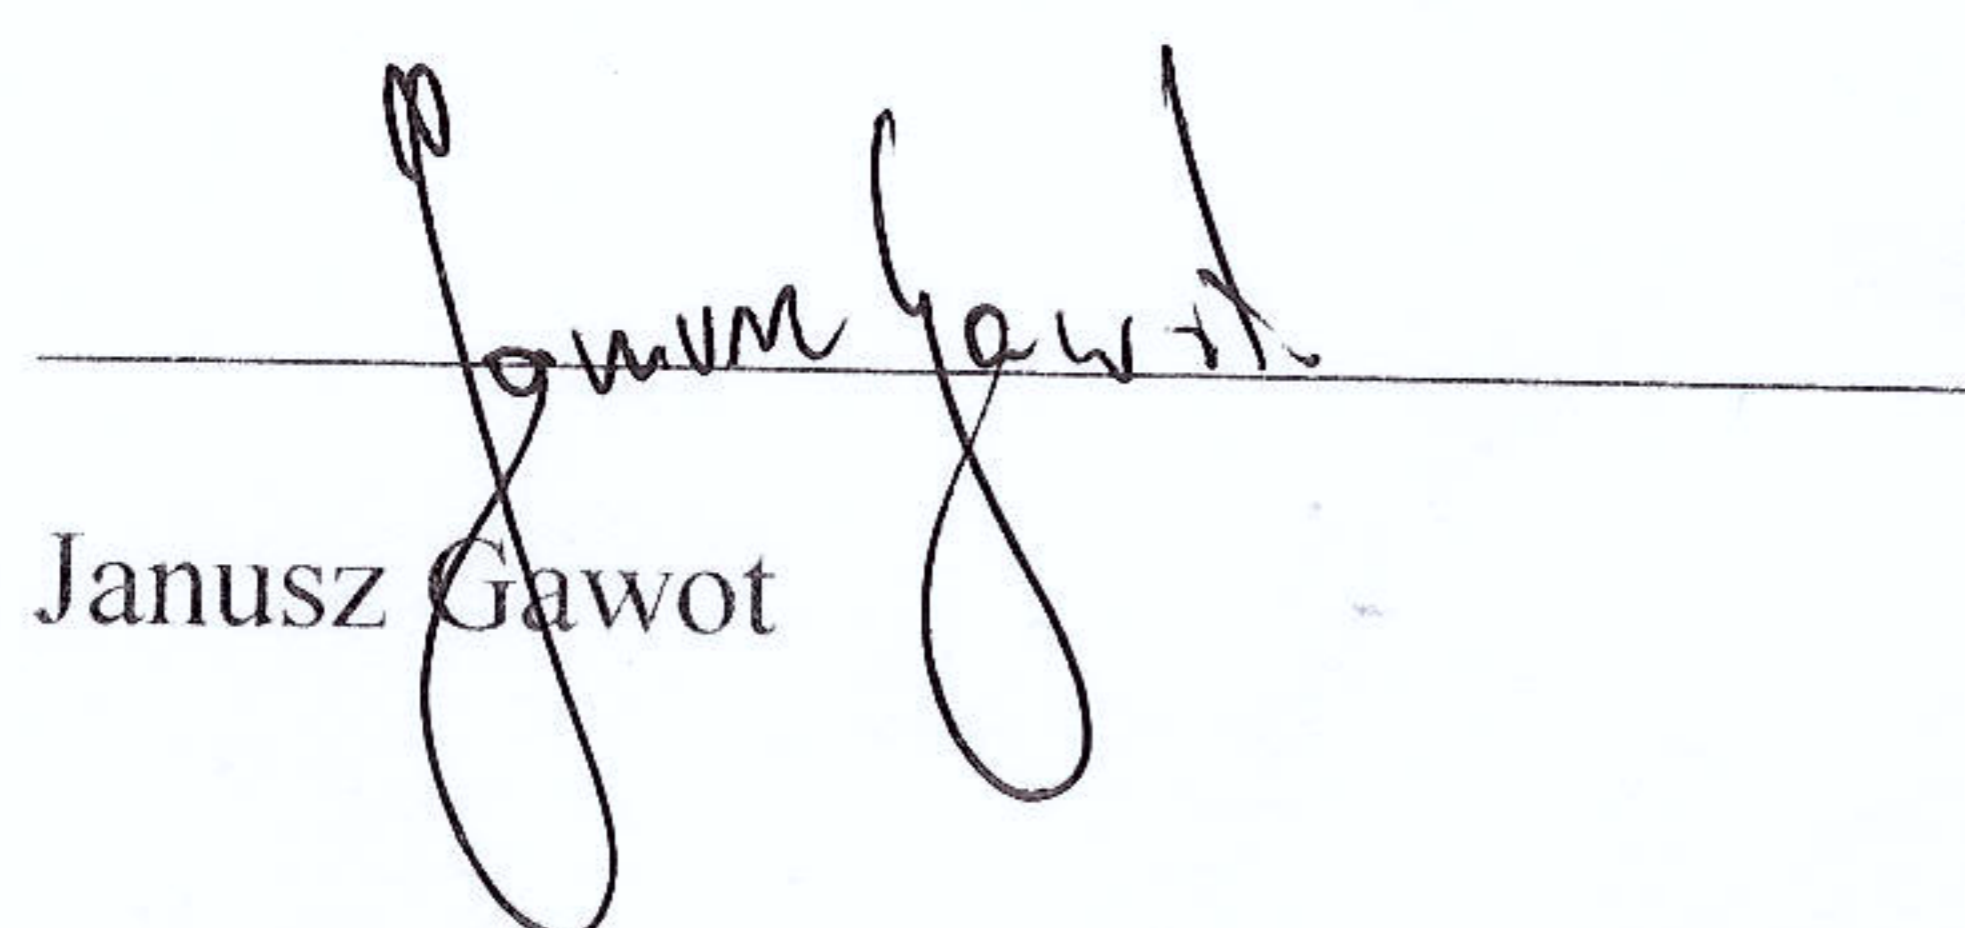 Janusz Gawot
Janusz Gawot